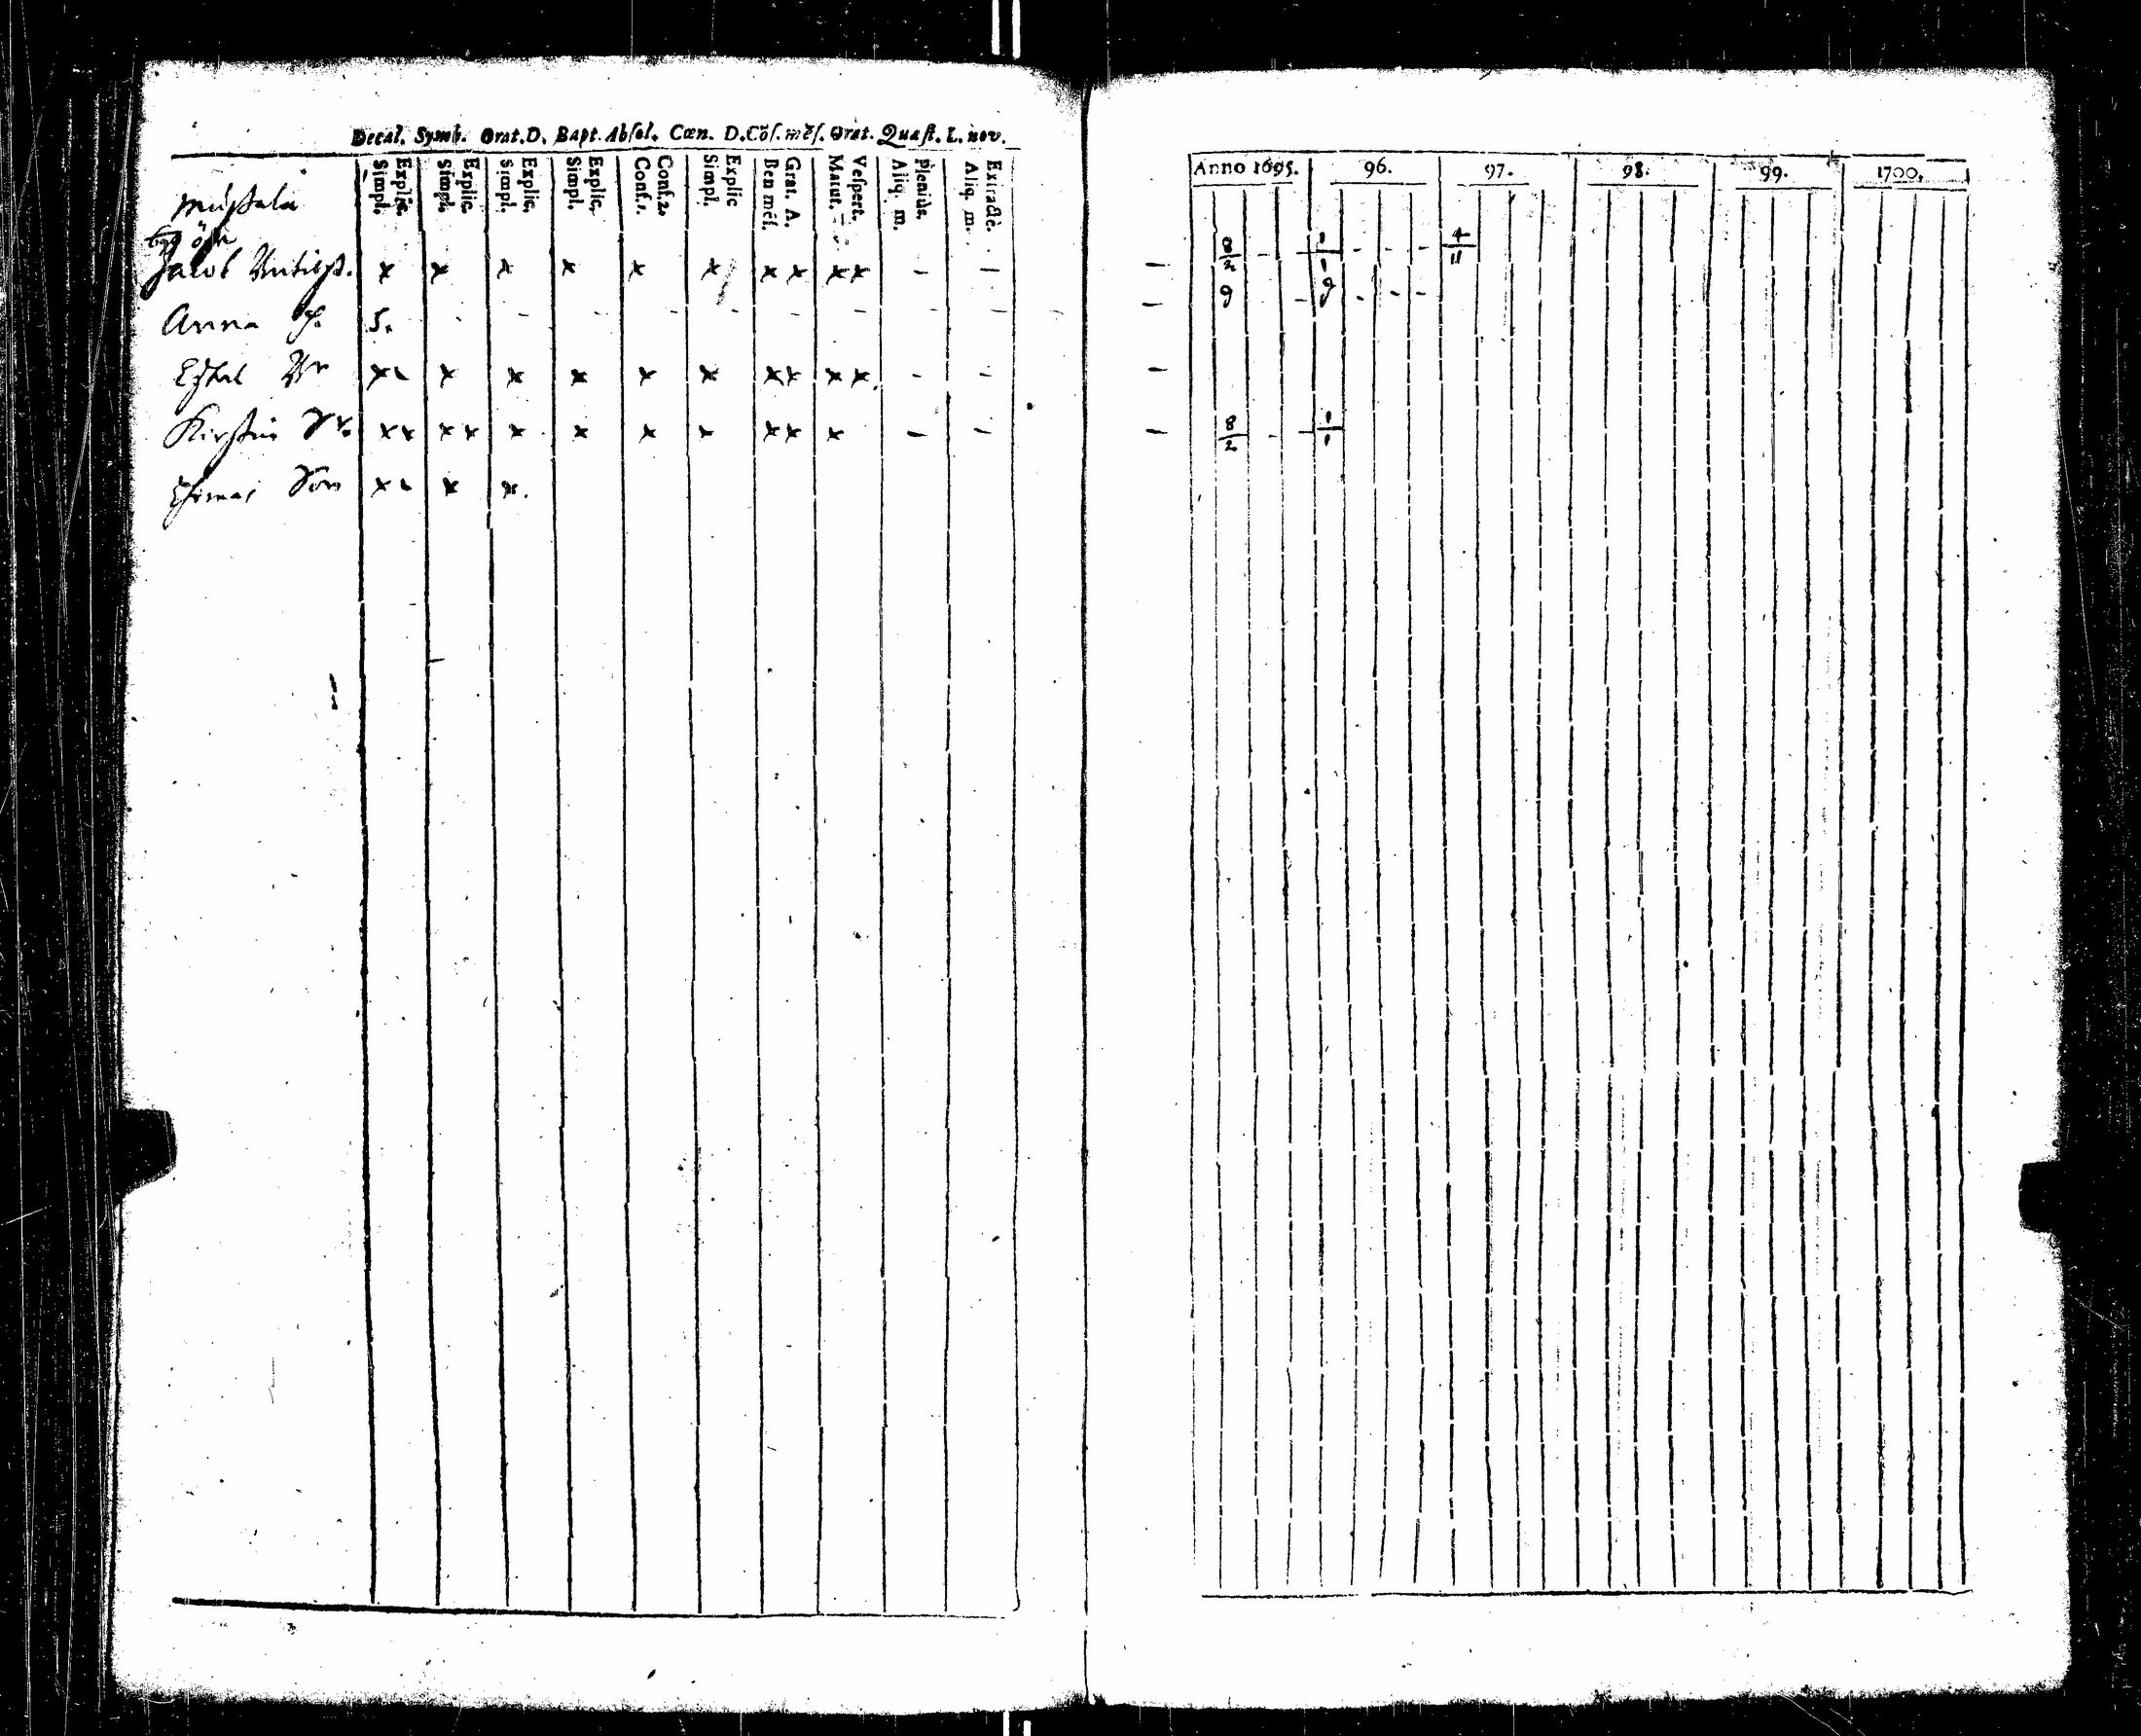 Decal. Symb. Orat.D. Bapt. Absol. Cœn. D. Cōſ. mēſ. Orat. Quæſt. L. nov.
Simpl. Explic. Simpl. Explic. Simpl. Explic. Simpl. Explic. Conf.1. Conf.2. Simpl. Explic Ben mēſ. Grat. A. Matut. Veſpert. Aliq. m. Pleniùs. Aliq. m. Extractè.
Mußala
Jacob x x x x x x x x x x - -
Anna h. S. - - - - - - - - -
x x x x x x x x x x - -
Kirstin x x x x x x x x x x x - -
x x x.
Anno 1695. 96. 97. 98. 99. 1700.
8/2 - - 1/1 - - - 4/11
9 - 9 - - -
8/2 - - 1/1